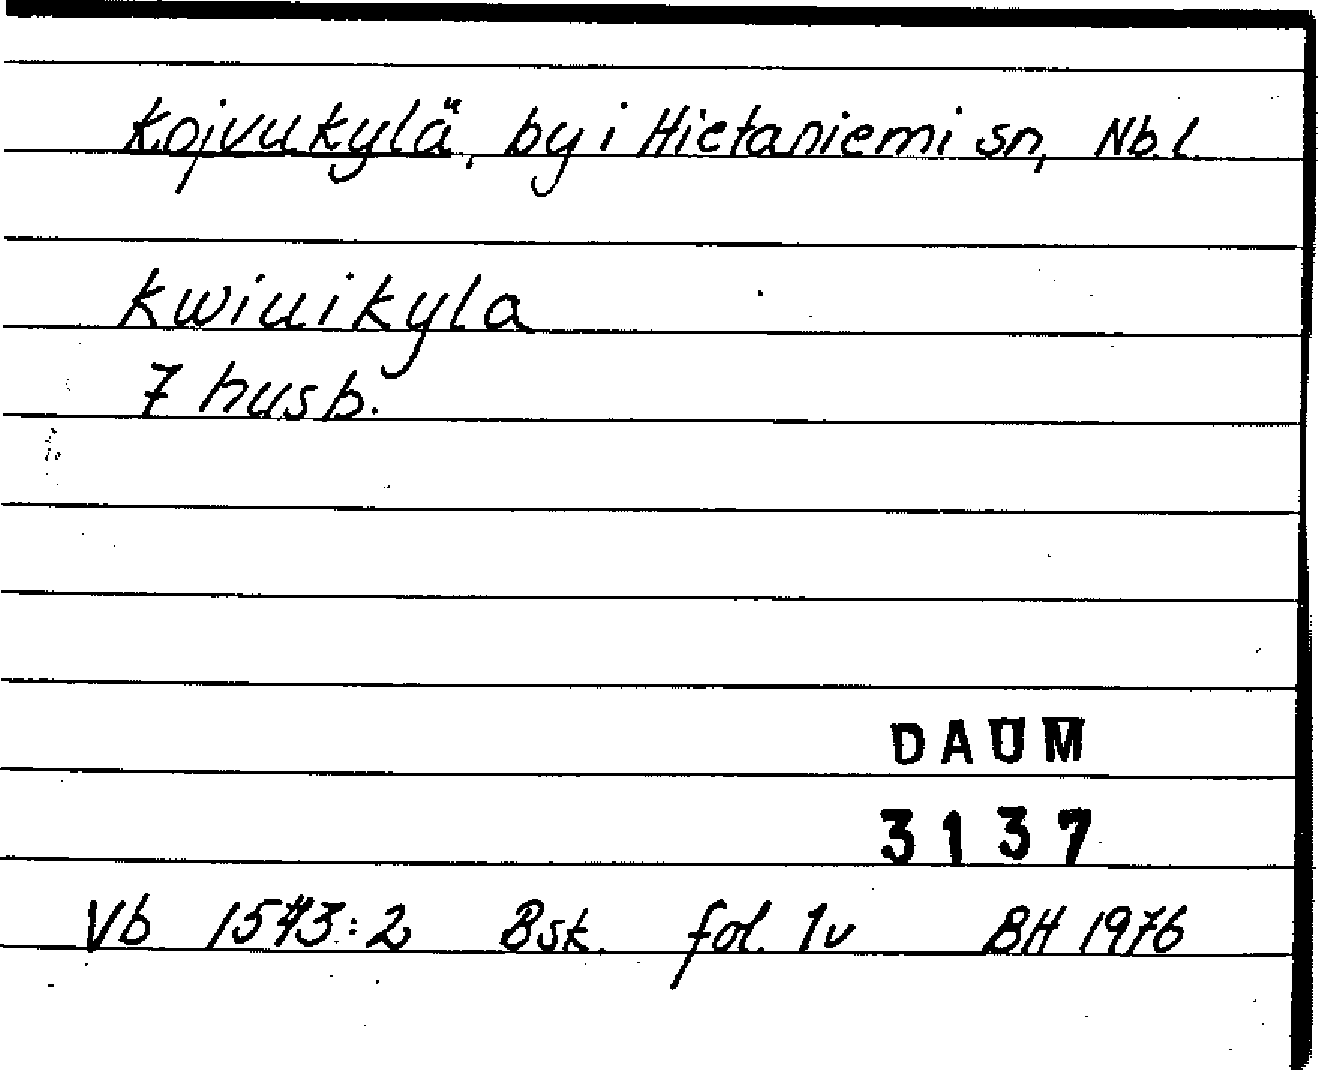 Kojvukylä, by i Hietaniemi sn, Nb.l.
Kwiuikyla
7 husb.
DAUM
3137
Vb 1543:2 Bsk. fol. 1v BH 1976